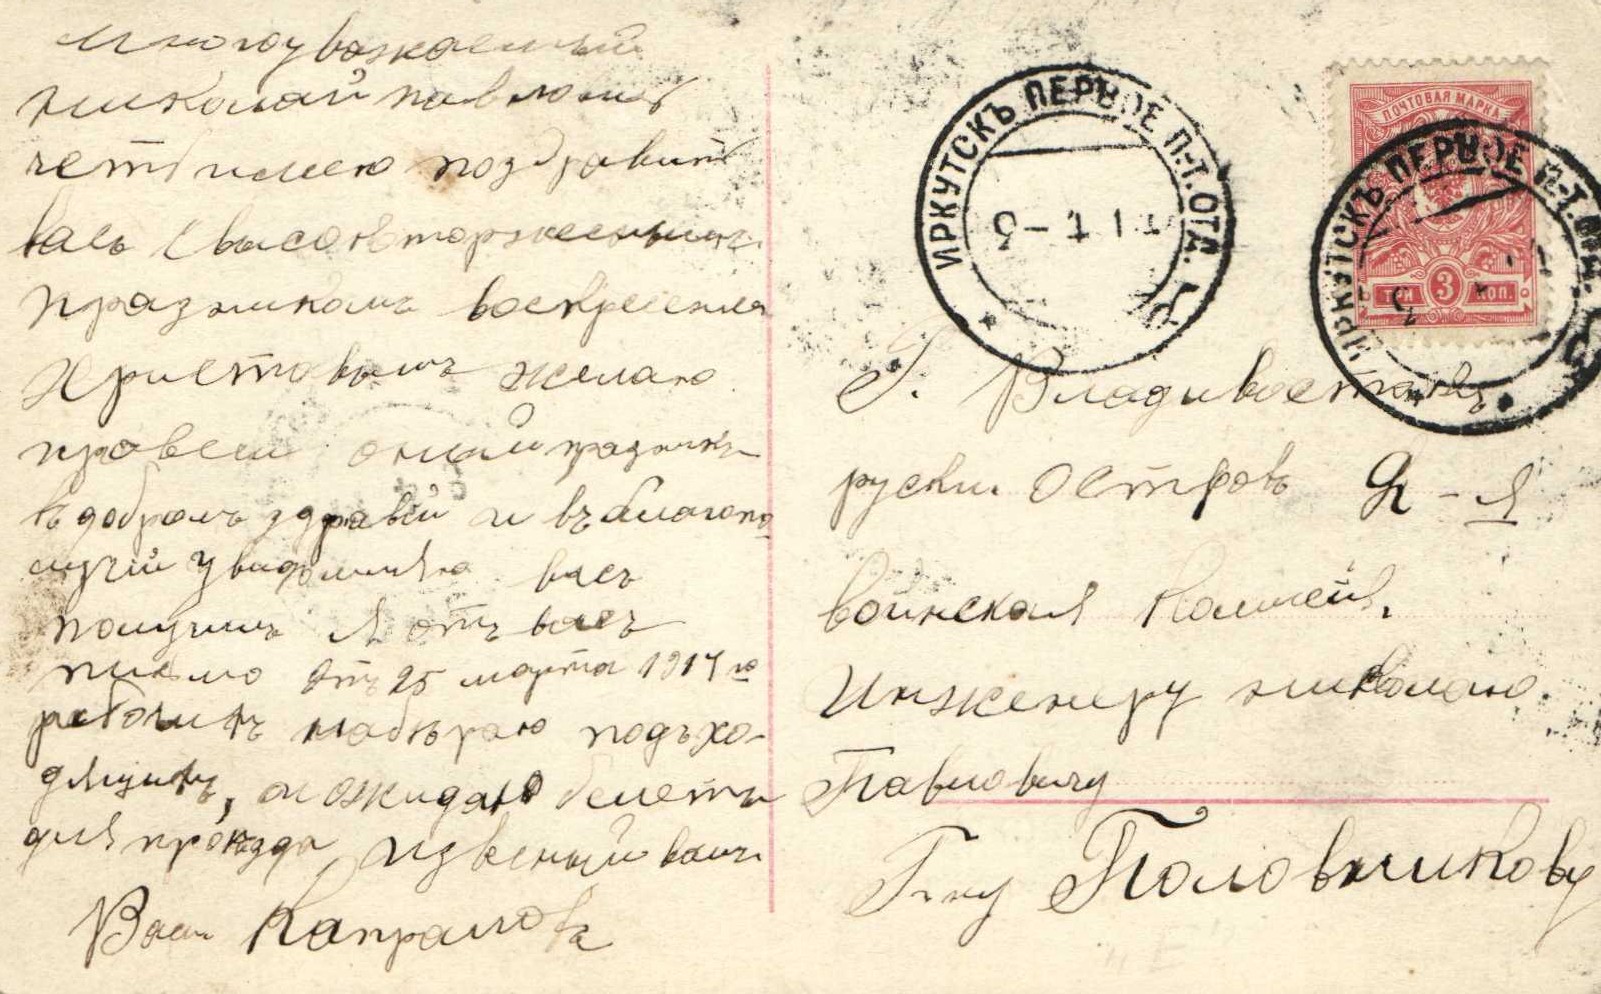 Многоуважаемый
николай павлович
честь имею поздравить
васъ с высокоторжесненымъ
празникомъ воскресения
христовымъ желаю
провести оный празникъ
въ добромъ здравiй и въ благопо
лучiй уведомляю васъ
получилъ я отъ васъ
письмо отъ 25 марта 1917 го
рабочихъ набѣраю подъхо-
дящихъ, и ожидаю белеты
для проѣзда извесный вамъ
Вася Капраловъ
ИРКУТСКЪ ПЕРВОЕ П.-Т. ОТД.
ПОЧТОВАЯ МАРКА
ТРИ 3 КОП.
ИРКУТСКЪ ПЕРВОЕ П.-Т. ОТД.
Г. Владивостокъ
руски. Островъ 2 - я
воинская
Инженеру николаю.
Павловичу
Г-ну Половникову